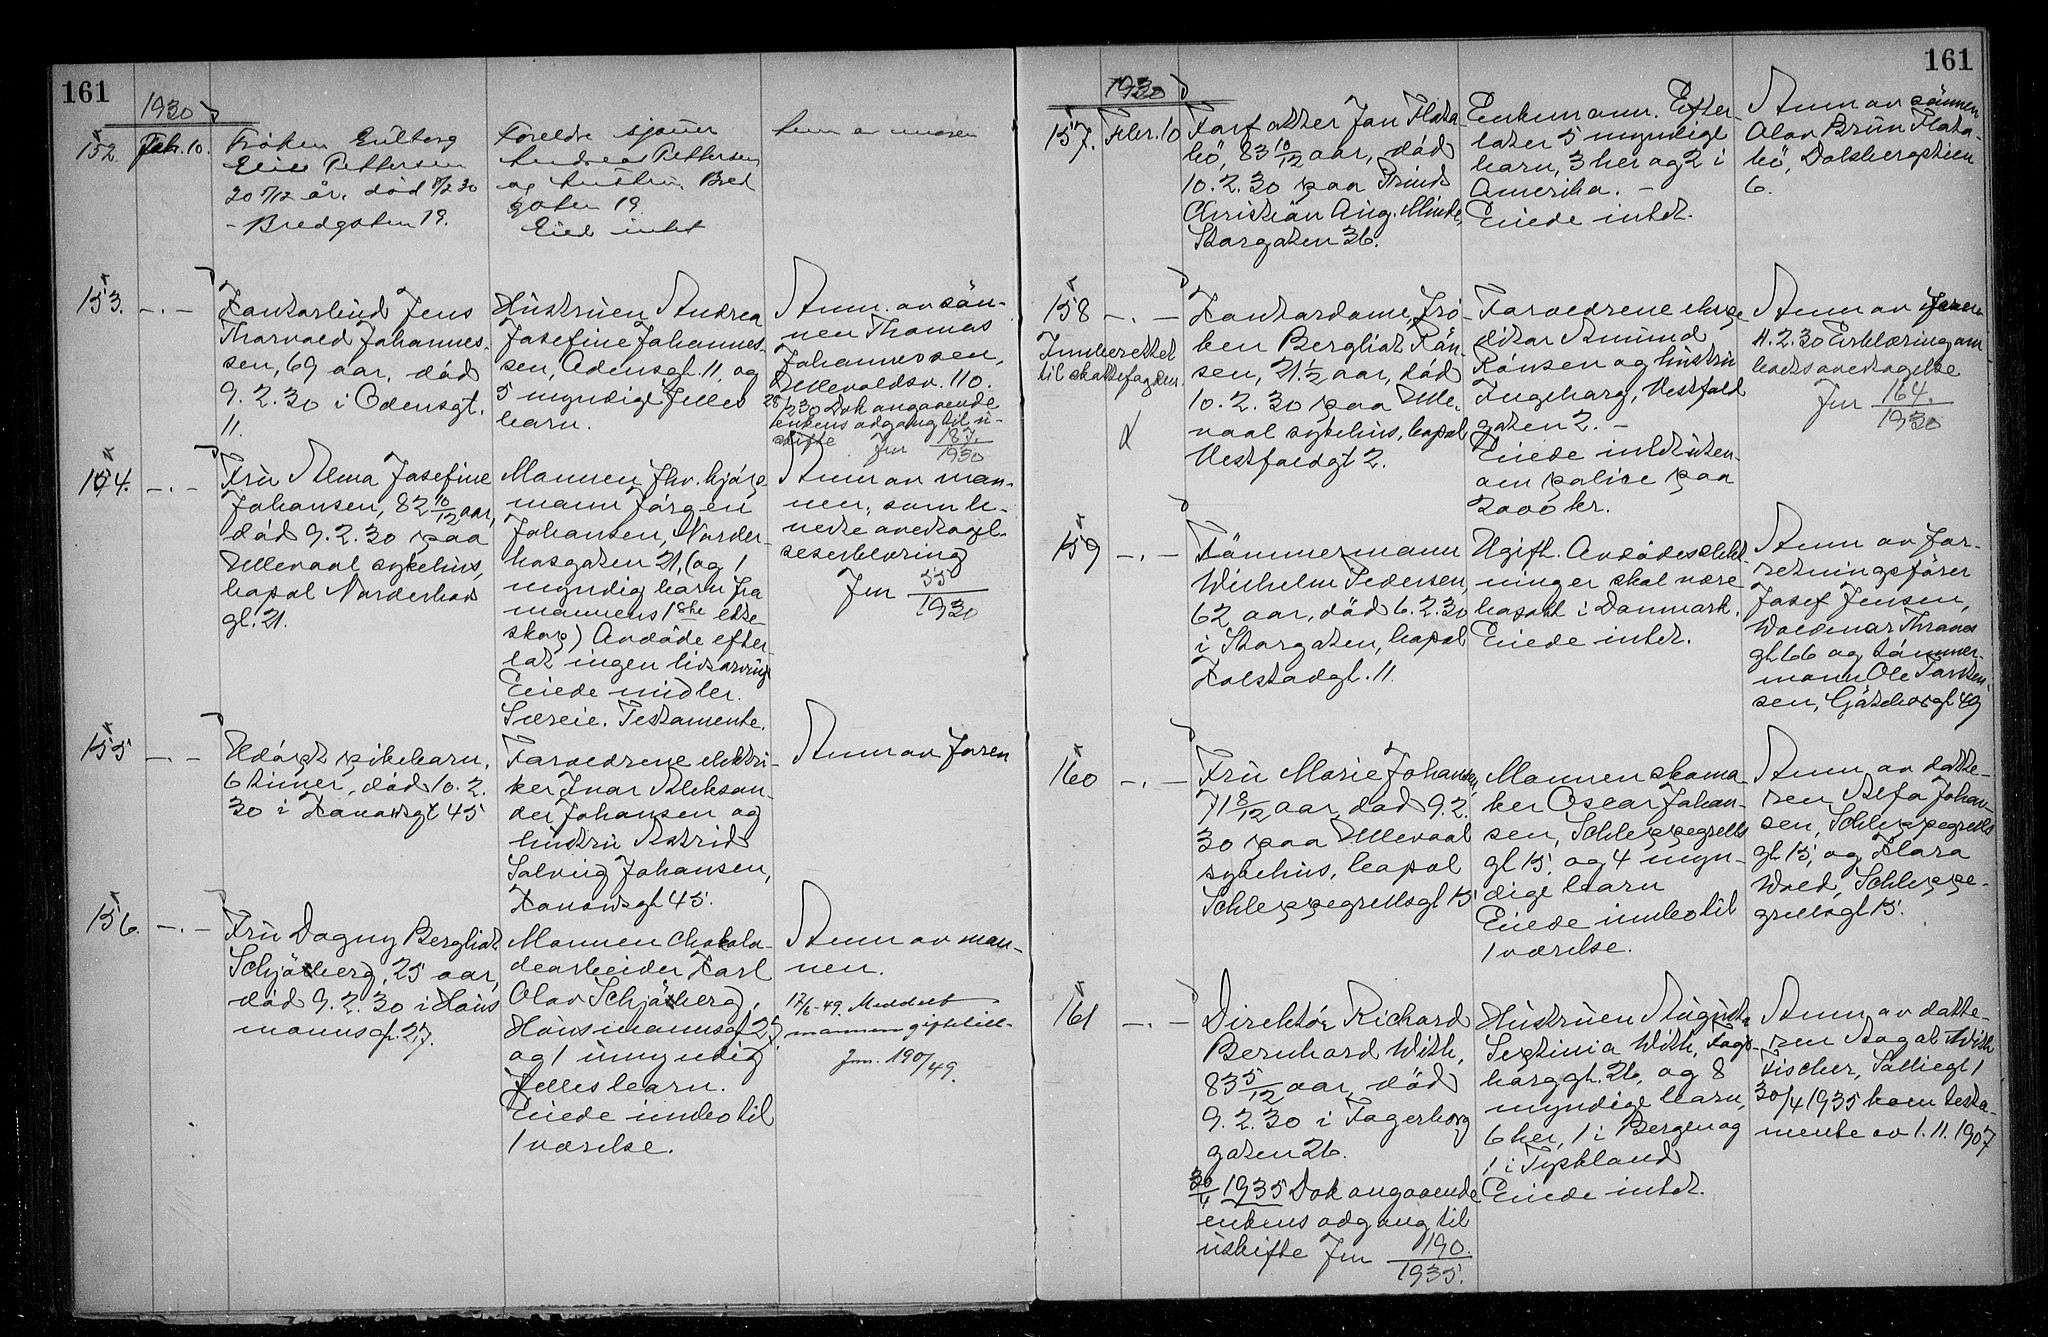 161
1930
152. Febr. 10.
Frøken Gulborg
Elise Pettersen
20 7/12 år, død 8/2 30
- Bredgaten 19.
Foreldre sjauer
Andreas Pettersen
og hustru, Bred
gaten 19
Eied intet
Anm av moren
153. -.-
Kontorbud Jens
Thorvald Johannes-
sen, 69 aar, död
9. 2. 30 i Odensgt.
11.
Hustruen Andrea
Josefine Johannes-
sen, Odensgt. 11, og
5 myndige felles
barn.
Anm. av sön-
nen Thomas
Johannessen,
Ullevoldsv. 110.
28/2 30 Dok angaaende
enkens adgang til u-
skifte Jnr 187/1930
154. -.-
Fru Alma Josefine
Johansen, 82 10/12 aar,
död 9. 2. 30 paa
Ullevaal sykehus,
bopæl Norderhovs
gt. 21.
Mannen fhv. kjöp-
mann Jörgen
Johansen, Norder-
hovsgaten 21, (og 1
myndig barn fra
mannens 1ste ekte-
skap) Avdöde efter-
lot ingen livsarving
Eiede midler.
Særeie. Testamente.
Anm av man-
nen, som le-
verte overtagel-
seserklæring
Jnr 55/1930
155 -.-
Udöpt pikebarn,
6 timer, död 10. 2.
30 i Kanowsgt 45
Forældrene elektri-
ker Ivar Aleksan-
der Johansen og
hustru Astrid
Solveig Johansen,
Kanowsgt 45.
Anm av faren
156. -.-
Fru Dagny Bergliot
Schjöberg, 25 aar,
död 9. 2. 30 i Haus
mannsgt. 27.
Mannen chokola-
dearbeider Karl
Olav Schjöberg,
Hausmannsgt 27,
og 1 umyndig
felles barn.
Eiede innbo til
1 værelse.
Anm av man-
nen.
17/6-49. Meddelt
mannen giftetill-
Jnr. 190/49.
161
1930
157. Febr. 10
Forfatter Jon Flata-
bö, 83 10/12 aar, död
10. 2. 30 paa Prinds
Christian Aug. Minde,
Storgaten 36.
Enkemann. Efter-
later 5 myndige
barn, 3 her og 2 i
Amerika. -
Eiede intet.
Anm av sönnen
Olav Brun Flata-
bö, Dalsbergstien
6.
158 -.-
Innberettet
til skattefogden.
Kontordame, frö-
ken Bergliot Rön-
sen, 21 1/2 aar, död
10. 2. 30 paa Ulle-
vaal sykehus, bopæl
Vestfoldgt 2.
Forældrene ekspe
ditör Amund
Rönsen og hustru
Ingeborg, Vestfold
gaten 2. -
Eiede intet uten-
om police paa
2000 kr.
Anm av faren
11. 2. 30 Erklæring om
boets overtagelse
Jnr 164./1930
159 -.-
Tömmermann
Wilhelm Pedersen,
62 aar, död 6. 2. 30
i Storgaten, bopæl
Kolstadgt. 11.
Ugift. Avdödes slekt-
ninger skal være
bosatt i Danmark.
Eiede intet.
Anm av for-
retningsförer
Josef Jensen,
Waldemar Thranes
gt. 66 og tömmer-
mann Ole Torsten-
sen, Göteborggt 49
160 -.-
Fru Marie Johansen,
71 8/12 aar, död 9. 2.
30 paa Ullevaal
sykehus, bopæl
Schleppegrellsgt 15
Mannen skoma-
ker Oscar Johan-
sen, Schleppegrells
gt 15, og 4 myn-
dige barn
Eiede innbo til
1 værelse.
Anm av datte-
ren Alfa Johan-
sen, Schleppegrells
gt 15, og Klara
Wold, Schleppe-
grellsgt 15.
161 -.-
Direktör Richard
Bernhard With,
83 5/12 aar, död
9. 2. 30 i Fagerborg
gaten 26.
30/4 1935 Dok angaaende
enkens adgang til
uskifte Jnr 190./1935.
Hustruen Augusta
Septimia With, Fager-
borggt. 26, og 8
myndige barn,
6 her, 1 i Bergen og
1 i Tyskland
Eiede intet.
Anm av datte-
ren Aagot With
Fischer, Solliegt 1
30/4 1935 kom testa-
mente av 1. 11. 1907